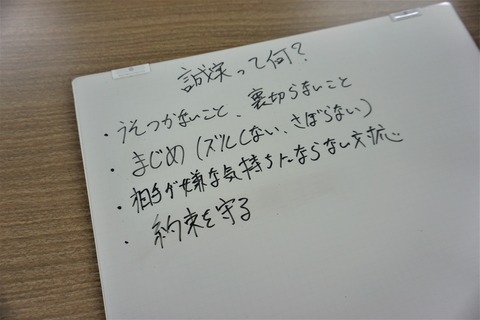 誠実って何?
・うそつかないこと、裏切らないこと
・まじめ(ズルしない、さぼらない)
・相手が嫌な気持ちにならない対応
・約束を守る